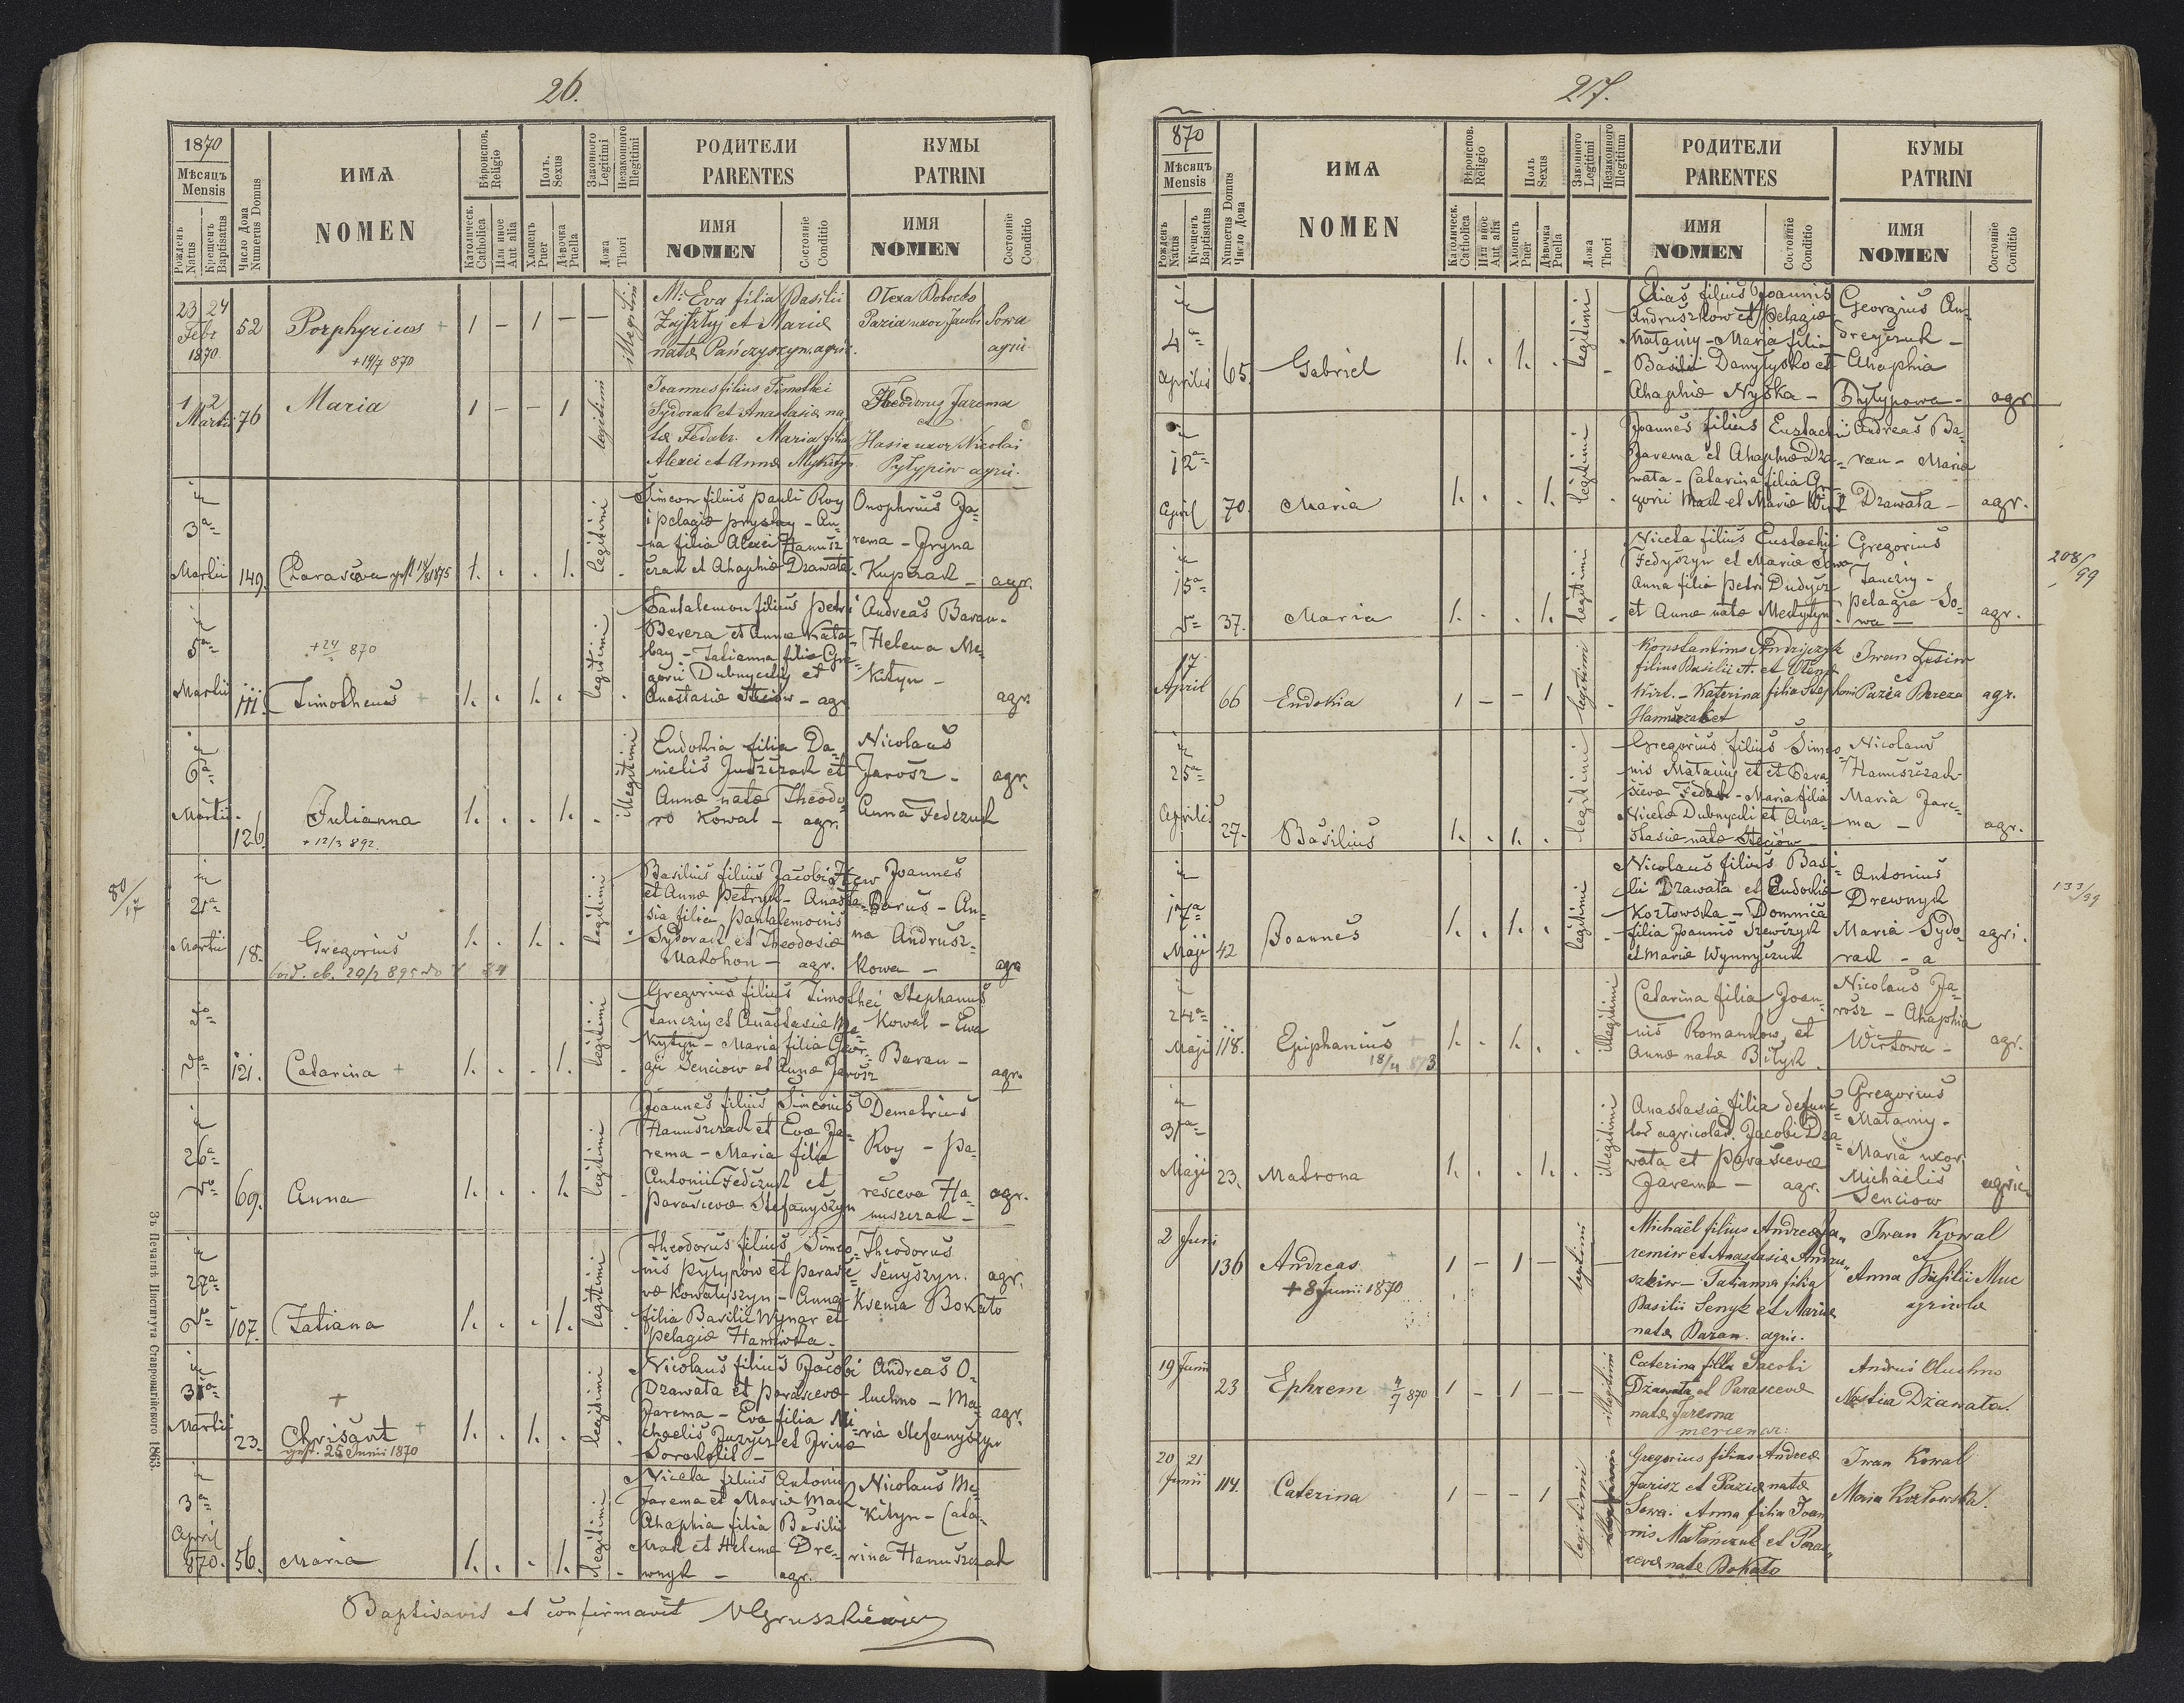 26.
1870
Мѣсяцъ
Mensis
Рожденъ
Natus
Крещенъ
Baptisatus
Число Дома
Numerus Domus
ИМѦ
NOMEN
Вѣроиспов.
Religio
Католическ.
Catholica
Или иное
Aut alia
Полъ.
Sexus
Хлопецъ
Puer
Дѣвочка
Puella
Законного
Legitimi
Незаконного
Illegitimi
Ложа
Thori
РОДИТЕЛИ
PARENTES
ИМЯ
NOMEN
Состояніе
Conditio
КУМЫ
PATRINI
ИМЯ
NOMEN
Состояніе
Conditio
23 24
Febr
1870
52
Porphyrius +
+ 19/7 870
1 – 1 – –
illegitim
M: Eva filia Basilii
et Mariæ
natæ Pańczyszyn. agric.
Olexa
Pazia uxor Jacobi Sowa
agric.
1 2
Martii 76
Maria
1 – – 1
legitimi
Joannes filius Timothei
Sydorak et Anastasiæ na
tæ Fedak. Maria filia
Alexei et Annæ Mykityn
Theodorus Jarema
et
Hasia uxor Nicolai
Pylypiw agric.
in
3a
Martii 149.
Parasceva
1. . . 1.
legitimi
Simeon filius Pauli Roy
i Pelagiæ Prystay – An-
na filia Alexei Hanusz
czak et Ahaphiæ Dzawata.
Onophrius Ja-
rema – Iryna
Kuperak – agr.
in
5a
Martii 111.
+ 24 870
Timotheus +
1. . 1. .
legitimi
Pantalemon filius Petri
Bereza et Annæ Kata-
bay – Tatianna filia Gre-
gorii Dubnycky et
Anastasiæ Steciow – agr
Andreas Baran.
Helena Me-
kityn –
agr.
in
6a
Martii 126.
Julianna
+ 12/3 892.
1. . . 1. .
illegitimi
Eudokia filia Da-
nielis Juszczak et
Annæ natæ Theodo-
ro Kowal – agr.
Nicolaus
Jarosz –
Anna Fedczuk
agr.
80/17
in
21a
Martii 18.
Gregorius
1. . 1. .
legitimi
Basilius filius Jacobi
et Annæ Petryk – Anasta-
sia filia Pantalemonis
Sydorak et Theodosiæ
Makohon – agr.
Joannes
Barus – An-
na Andrusz-
kowa –
agr
do
do 121.
Catarina +
1. . . 1.
legitimi
Gregorius filius Timothei
Tanczin et Anastasiæ Me-
kytyn – Maria filia Geor-
gii Senciow et Annæ Jarosz
Stephanus
Kowal – Eva
Baran –
agr.
in
26a
do 69.
Anna
1. . . 1.
legitimi
Joannes filius Simeonis
Hanuszczak et Evæ Ja-
rema – Maria filia
Antonii Fedczuk et
Parascevæ Stefanyszyn
Demetrius
Roy – Pa-
resceva Ha-
nuszczak –
agr.
in
27a
do 107.
Tatiana
1. . . 1.
legitimi
Theodorus filius Simeo-
nis Pylypow et Parasce-
væ Kowalyszyn – Anna
filia Basilii Wynar et
Pelagiæ
Theodorus
Senyszyn.
Ksenia Bokato
agr.
in
31a
Martii 23.
+
Chrisant +
gest. 25 Junii 1870
1. . 1. .
legitimi
Nicolaus filius Jacobi
Dzawata et Parascevæ
Jarema – Eva filia Mi-
chaelis et Irinæ
Sorokolit –
Andreas O-
luchno – Ma-
ria Stefanyszyn
agr.
in
3a
April
870. 56.
Maria
1. . . 1.
illegitimi
Niceta filius Antonii
Jarema et Mariæ Mak
Ahaphia filia Basilii
Mak et Helenæ Dre-
wnyk – agr.
Nicolaus Me-
kityn – Cata-
rina Hanuszczak
Baptisavit et confirmavit MGruszkiewicz
Зъ Печатнѣ Института Ставропигійского 1863.
27.
870
Мѣсяцъ
Mensis
Рожденъ
Natus
Крещенъ
Baptisatus
Numerus Domus
Число Дома
ИМѦ
NOMEN
Вѣроиспов.
Religio
Католическ.
Catholica
Или иное
Aut alia
Полъ
Sexus
Хлопецъ
Puer
Дѣвочка
Puella
Законного
Legitimi
Незаконного
Illegitimum
Ложа
Thori
РОДИТЕЛИ
PARENTES
ИМЯ
NOMEN
Состояніе
Conditio
КУМЫ
PATRINI
ИМЯ
NOMEN
Состояніе
Conditio
in
4a
Aprilis 65.
Gabriel
1. . 1. .
legitimi
Elias filius Joannis
Andruszkow et Pelagiæ
Matainy – Maria filia
Basilii Danylysko et
Ahaphiæ Nyska –
Georgius An-
dreyczuk –
Ahaphia
Pylypowa – agr
in
12a
April 70.
Maria
1. . . 1.
legitimi
Joannes filius Eustachii
Jarema et Ahaphiæ Dza-
wata – Catarina filia Gre
gorii Mak et Mariæ Wirt
Andreas Ba-
ran – Maria
Dzawata – agr.
in
15a
do 37.
Maria
1. . . 1.
legitimi
Niceta filius Eustachii
Fedyszyn et Mariæ Sowa
Anna filia Petri Dudycz
et Annæ natæ Medytyn
Gregorius
Tanczin –
Pelagia So-
wa –
agr.
208/99
17
April 66
Eudokia
1 – – 1
legitimi
Konstantinus Andrijczyk
filius Basilii A. et
Wirt. – Katerina filia Stephani
Hanuszczak et
Iwan Łesiw
et
Pazia Bereza agr.
in
25a
Aprilis 27.
Basilius
1. . 1. .
legitimi
Gregorius filius Simeo-
nis Matainy et et Para-
scevæ Fedak – Maria filia
Nicetæ Dubnycki et Ana-
stasiæ natæ Steciów –
Nicolaus
Hanuszczak
Maria Jare-
ma –
agr.
in
17a
Maji 42
Joannes
1. . 1. .
legitimi
Nicolaus filius Basi-
lii Dzawata et Eudochiæ
Kozłowska – Domnica
filia Joannis Szewczyk
et Mariæ Wynnyczuk
Antonius
Drewnyk
Maria Sydo-
rak – a
agri.
133/99
in
24a
Maji 118.
Epiphanius +
18/4 873
1. . 1. .
illegitimi
Catarina filia Joan-
nis Romankow, et
Annæ natæ Biłyk.
Nicolaus Ja-
rosz – Ahaphia
Wirtowa –
agr.
in
31a
Maji 23.
Matrona
1. . . 1. .
illegitimi
Anastasia filia defunc-
tor agricolar. Jacobi Dza-
wata et Parascevæ
Jarema – agr.
Gregorius
Matainy –
Maria uxor
Michaëlis
Senciow
agric.
2 Juni
136
Andreas +
+ 8 Junii 1870
1 – 1 –
legitimi
Michaël filius Andreæ Ja-
remiw et Anastasiæ Andru-
szkiw – Tatianna filia
Basilii Senyk et Mariæ
natæ Baran. agric.
Iwan Kowal
et
Anna Basilii Muc
agricolæ
19 Junii
23
Ephrem + 4/7 870
1 – 1 – –
illegitimi
Caterina filla Jacobi
Dzawata et Parascevæ
natæ Jarema
mercenar:
Andrus Oluchno
Nastia Dzawata.
20 21
Junii 114.
Caterina
1 – – 1
legitimi
Gregorius filius Andreæ
Jarisz et Paziæ natæ
Sowa. Anna filia Joan
nis Matainczuk et Paras
cevæ natæ Bokało
Iwan Kowal
Maria Kozłowska.